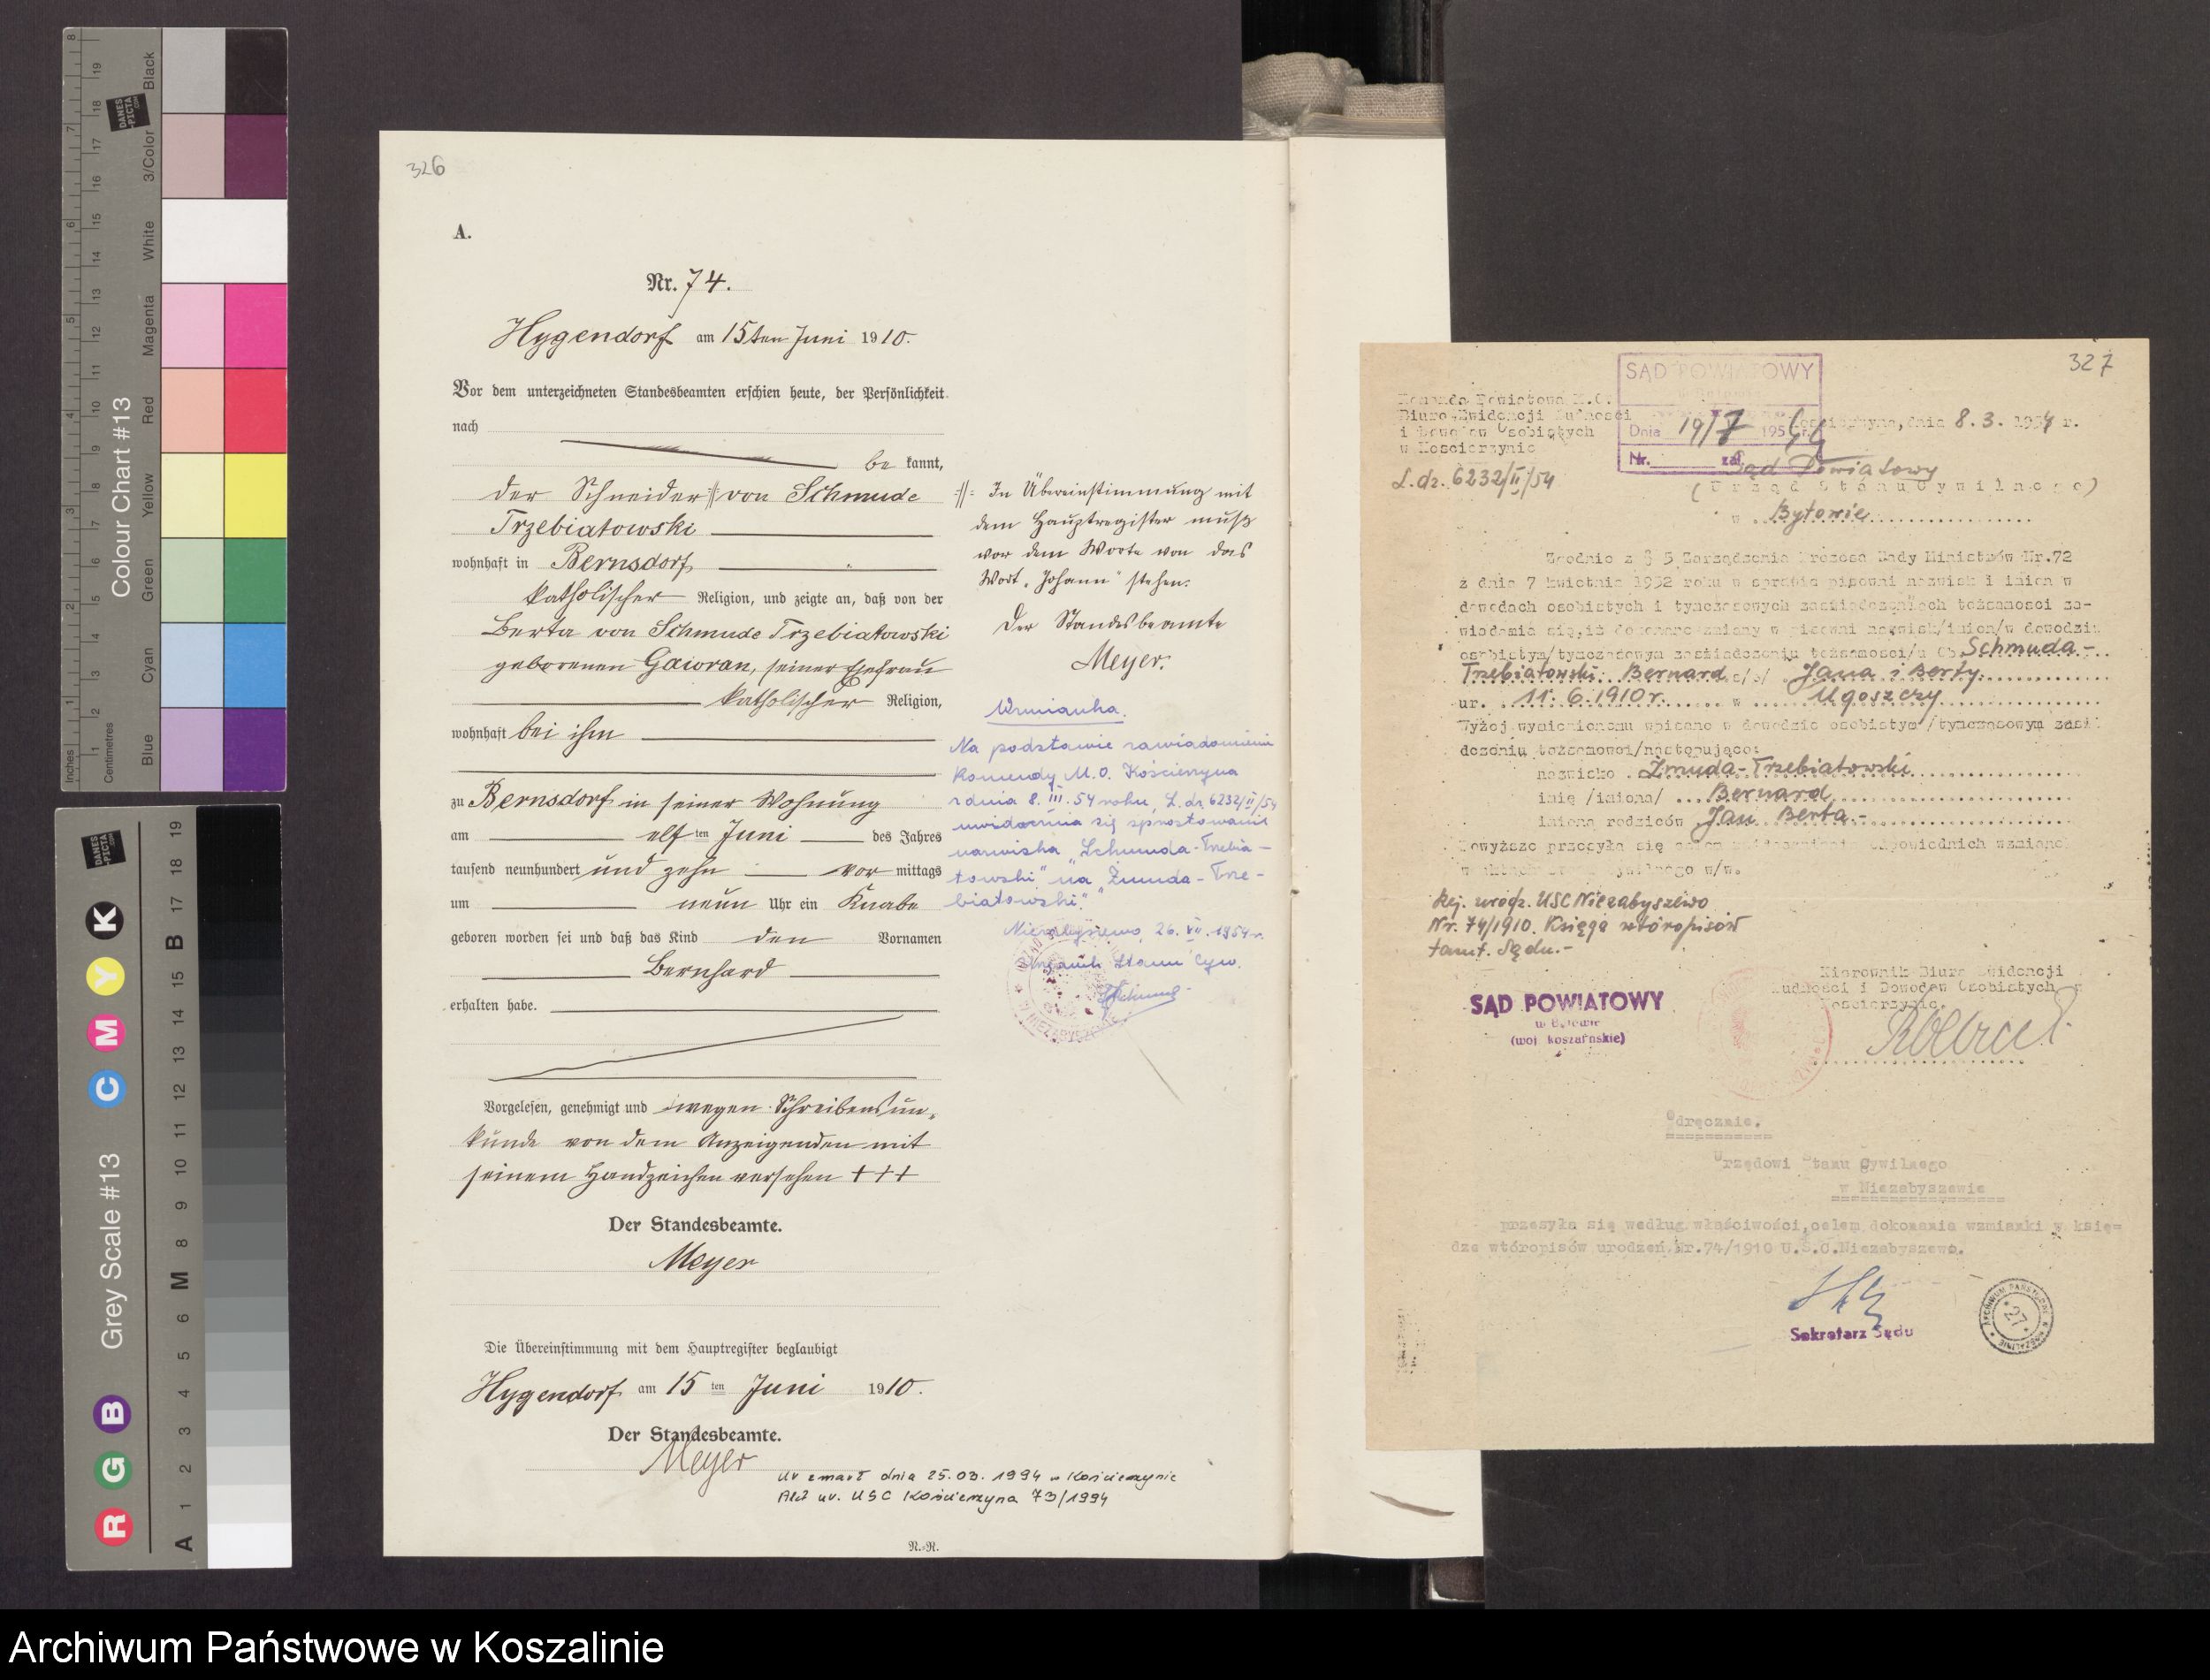 326
A.
Nr. 74.
Hygendorf am 15ten Juni 1910.
Vor dem unterzeichneten Standesbeamten erschien heute, der Persönlichkeit
nach
be kannt,
der Schneider // von Schmude
Trzebiatowski
wohnhaft in Bernsdorf
katholischer Religion, und zeigte an, daß von der
Berta von Schmude Trzebiatowski
geborenen Gaioran, seiner Ehefrau
katholischer Religion,
wohnhaft bei ihm
zu Bernsdorf in seiner Wohnung
am elf ten Juni des Jahres
tausend neunhundert und zehn vor mittags
um neun Uhr ein Knabe
geboren worden sei und daß das Kind den Vornamen
Bernhard
erhalten habe.
Vorgelesen, genehmigt und wegen Schreibensun-
kunde von dem Anzeigenden mit
seinem Handzeichen versehen +++
Der Standesbeamte.
Meyer
Die Übereinstimmung mit dem Hauptregister beglaubigt
Hygendorf am 15 ten Juni 1910.
Der Standesbeamte.
Meyer
Uv zmarł dnia 25.03.1994 w Kościerzynie
Akt uv. USC Kościerzyna 73/1994
N.-R.
-//- In Übereinstimmung mit
dem Hauptregister muß
vor dem Worte von das
Wort „Johann" stehen.
Der Standesbeamte
Meyer.
Wzmianka.
Na podstawie zawiadomienia
Komendy M.O. Kościerzyna
z dnia 8.III.54 roku, L.dz. 6232/II/54
uwidacznia się sprostowanie
nazwiska „Schmuda-Trzebia-
towski" na „Żmuda-Trze-
biatowski".
Niezabyszewo, 26.VII.1954 r.
Urzędnik Stanu Cyw.
327
Komenda Powiatowa M.O.
Biuro Ewidencji Ludności
i Dowodów Osobistych
w Kościerzynie
L.dz. 6232/II/54
SĄD POWIATOWY
Dnia 19/7 195
Nr. zał.
Kościerzyna, dnia 8.3.1954 r.
Sąd Powiatowy
(Urząd Stanu Cywilnego)
w Bytowie
Zgodnie z § 5 Zarządzenia Prezesa Rady Ministrów Nr.72
z dnia 7 kwietnia 1952 roku w sprawie pisowni nazwisk i imion w
dowodach osobistych i tymczasowych zaświadczeniach tożsamości za-
wiadamia się, iż dokonano zmiany w pisowni nazwisk/imion/w dowodzie
osobistym/tymczasowym zaświadczeniu tożsamości/u Ob. Schmuda-
Trzebiatowski Bernard s/c/ Jana i Berty
ur. 11.6.1910 r. w Ugoszczy
Wyżej wymienionemu wpisano w dowodzie osobistym /tymczasowym zaś
dczeniu tożsamości/następująco:
nazwisko Żmuda-Trzebiatowski
imię /imiona/ Bernard
imiona rodziców Jan Berta.-
Powyższe przesyła się celem uwidocznienia odpowiednich wzmianek
w aktach stanu cywilnego w/w.
Rej. urodz. USC Niezabyszewo
Nr. 74/1910. Księga wtóropisów
tamt. Sądu.-
Kierownik Biura Ewidencji
Ludności i Dowodów Osobistych w
Kościerzynie.
SĄD POWIATOWY
w Bytowie
(woj. koszalińskie)
Odręcznie.
Urzędowi Stanu Cywilnego
w Niezabyszewie
przesyła się według właściwości, celem dokonania wzmianki w księ-
dze wtóropisów urodzeń Nr.74/1910 U.S.C. Niezabyszewo.
Sekretarz Sądu
ARCHIWUM PAŃSTWOWE W KOSZALINIE
27
Colour Chart #13
Black
3/Color
White
Magenta
Red
Yellow
Green
Cyan
Blue
Inches
Centimetres
DANES
-PICTA
.COM
Grey Scale #13
R G B C M Y K
A 1 2 3 4 5 6 M 8 9 10 11 12 13 14 15 B 17 18 19
Archiwum Państwowe w Koszalinie